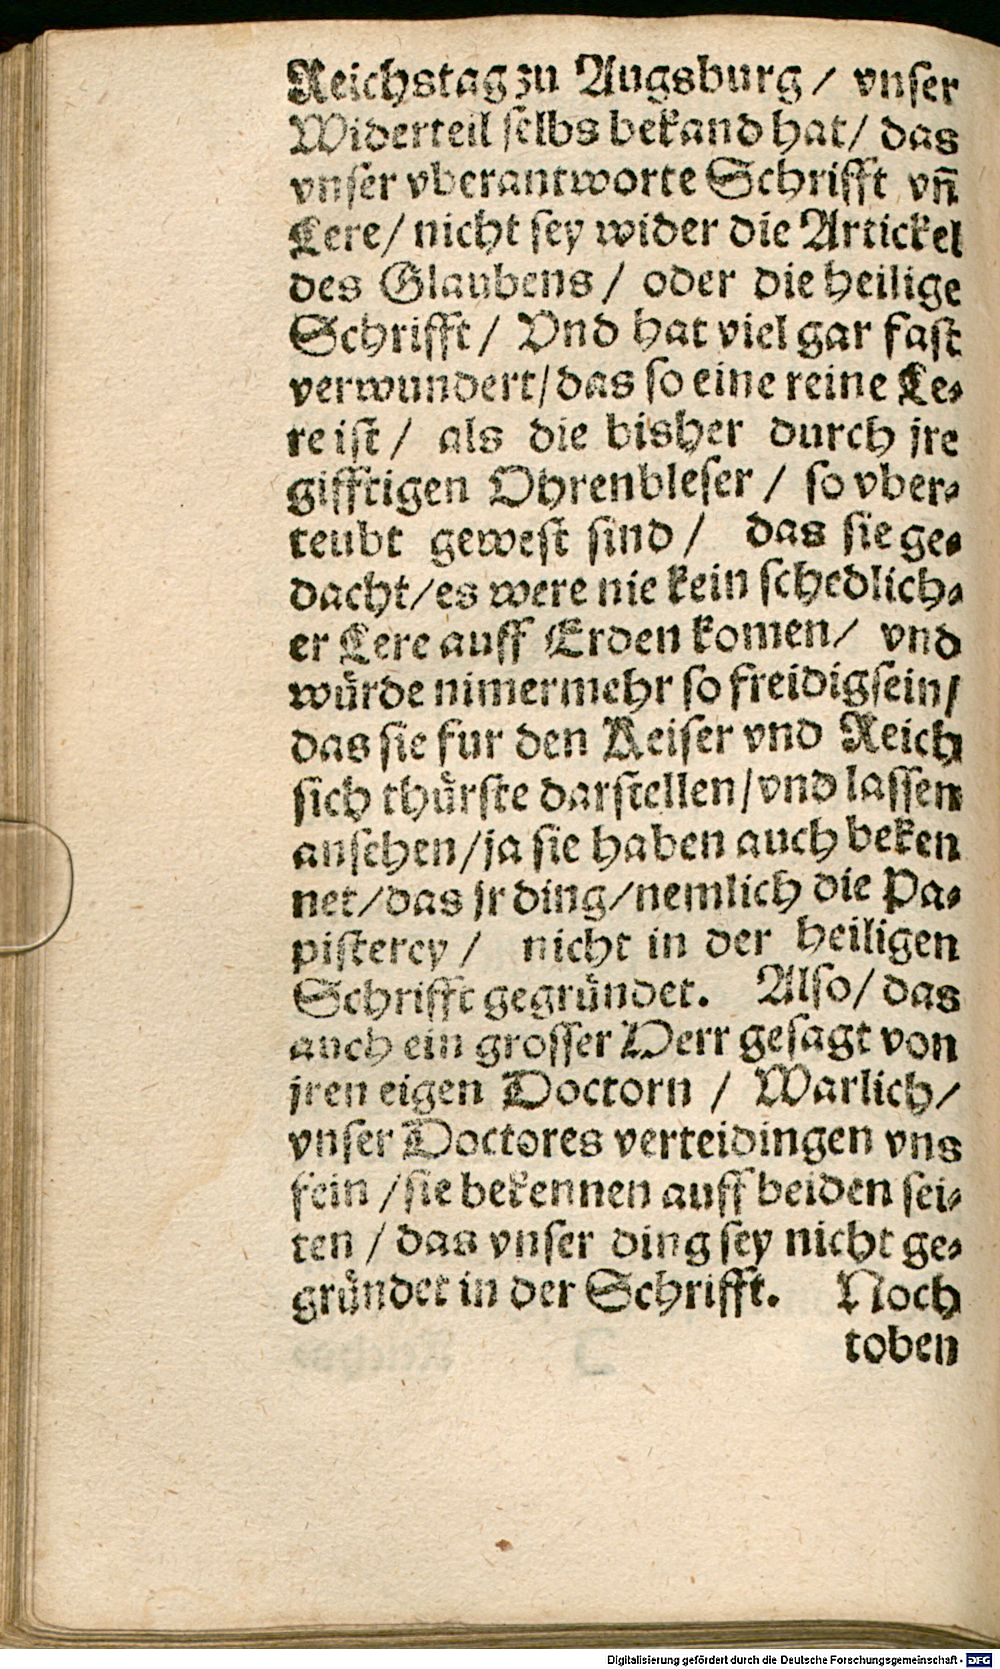 Reichstag zu Augsburg / vnser
Widerteil selbs bekand hat / das
vnser vberantworte Schrifft vn̄
Lere / nicht sey wider die Artickel
des Glaubens / oder die heilige
Schrifft / Vnd hat viel gar fast
verwundert / das so eine reine Le-
re ist / als die bisher durch jre
gifftigen Ohrenbleser / so vber-
teubt gewest sind / das sie ge-
dacht / es were nie kein schedlich-
er Lere auff Erden komen / vnd
wuͤrde nimermehr so freidig sein /
das sie fur den Keiser vnd Reich
sich thuͤrste darstellen / vnd lassen
ansehen / ja sie haben auch beken
net / das jr ding / nemlich die Pa-
pisterey / nicht in der heiligen
Schrifft gegruͤndet. Also / das
auch ein grosser Herr gesagt von
jren eigen Doctorn / Warlich /
vnser Doctores verteidingen vns
fein / sie bekennen auff beiden sei-
ten / das vnser ding sey nicht ge-
gruͤndet in der Schrifft. Noch
toben
Digitalisierung gefördert durch die Deutsche Forschungsgemeinschaft - DFG